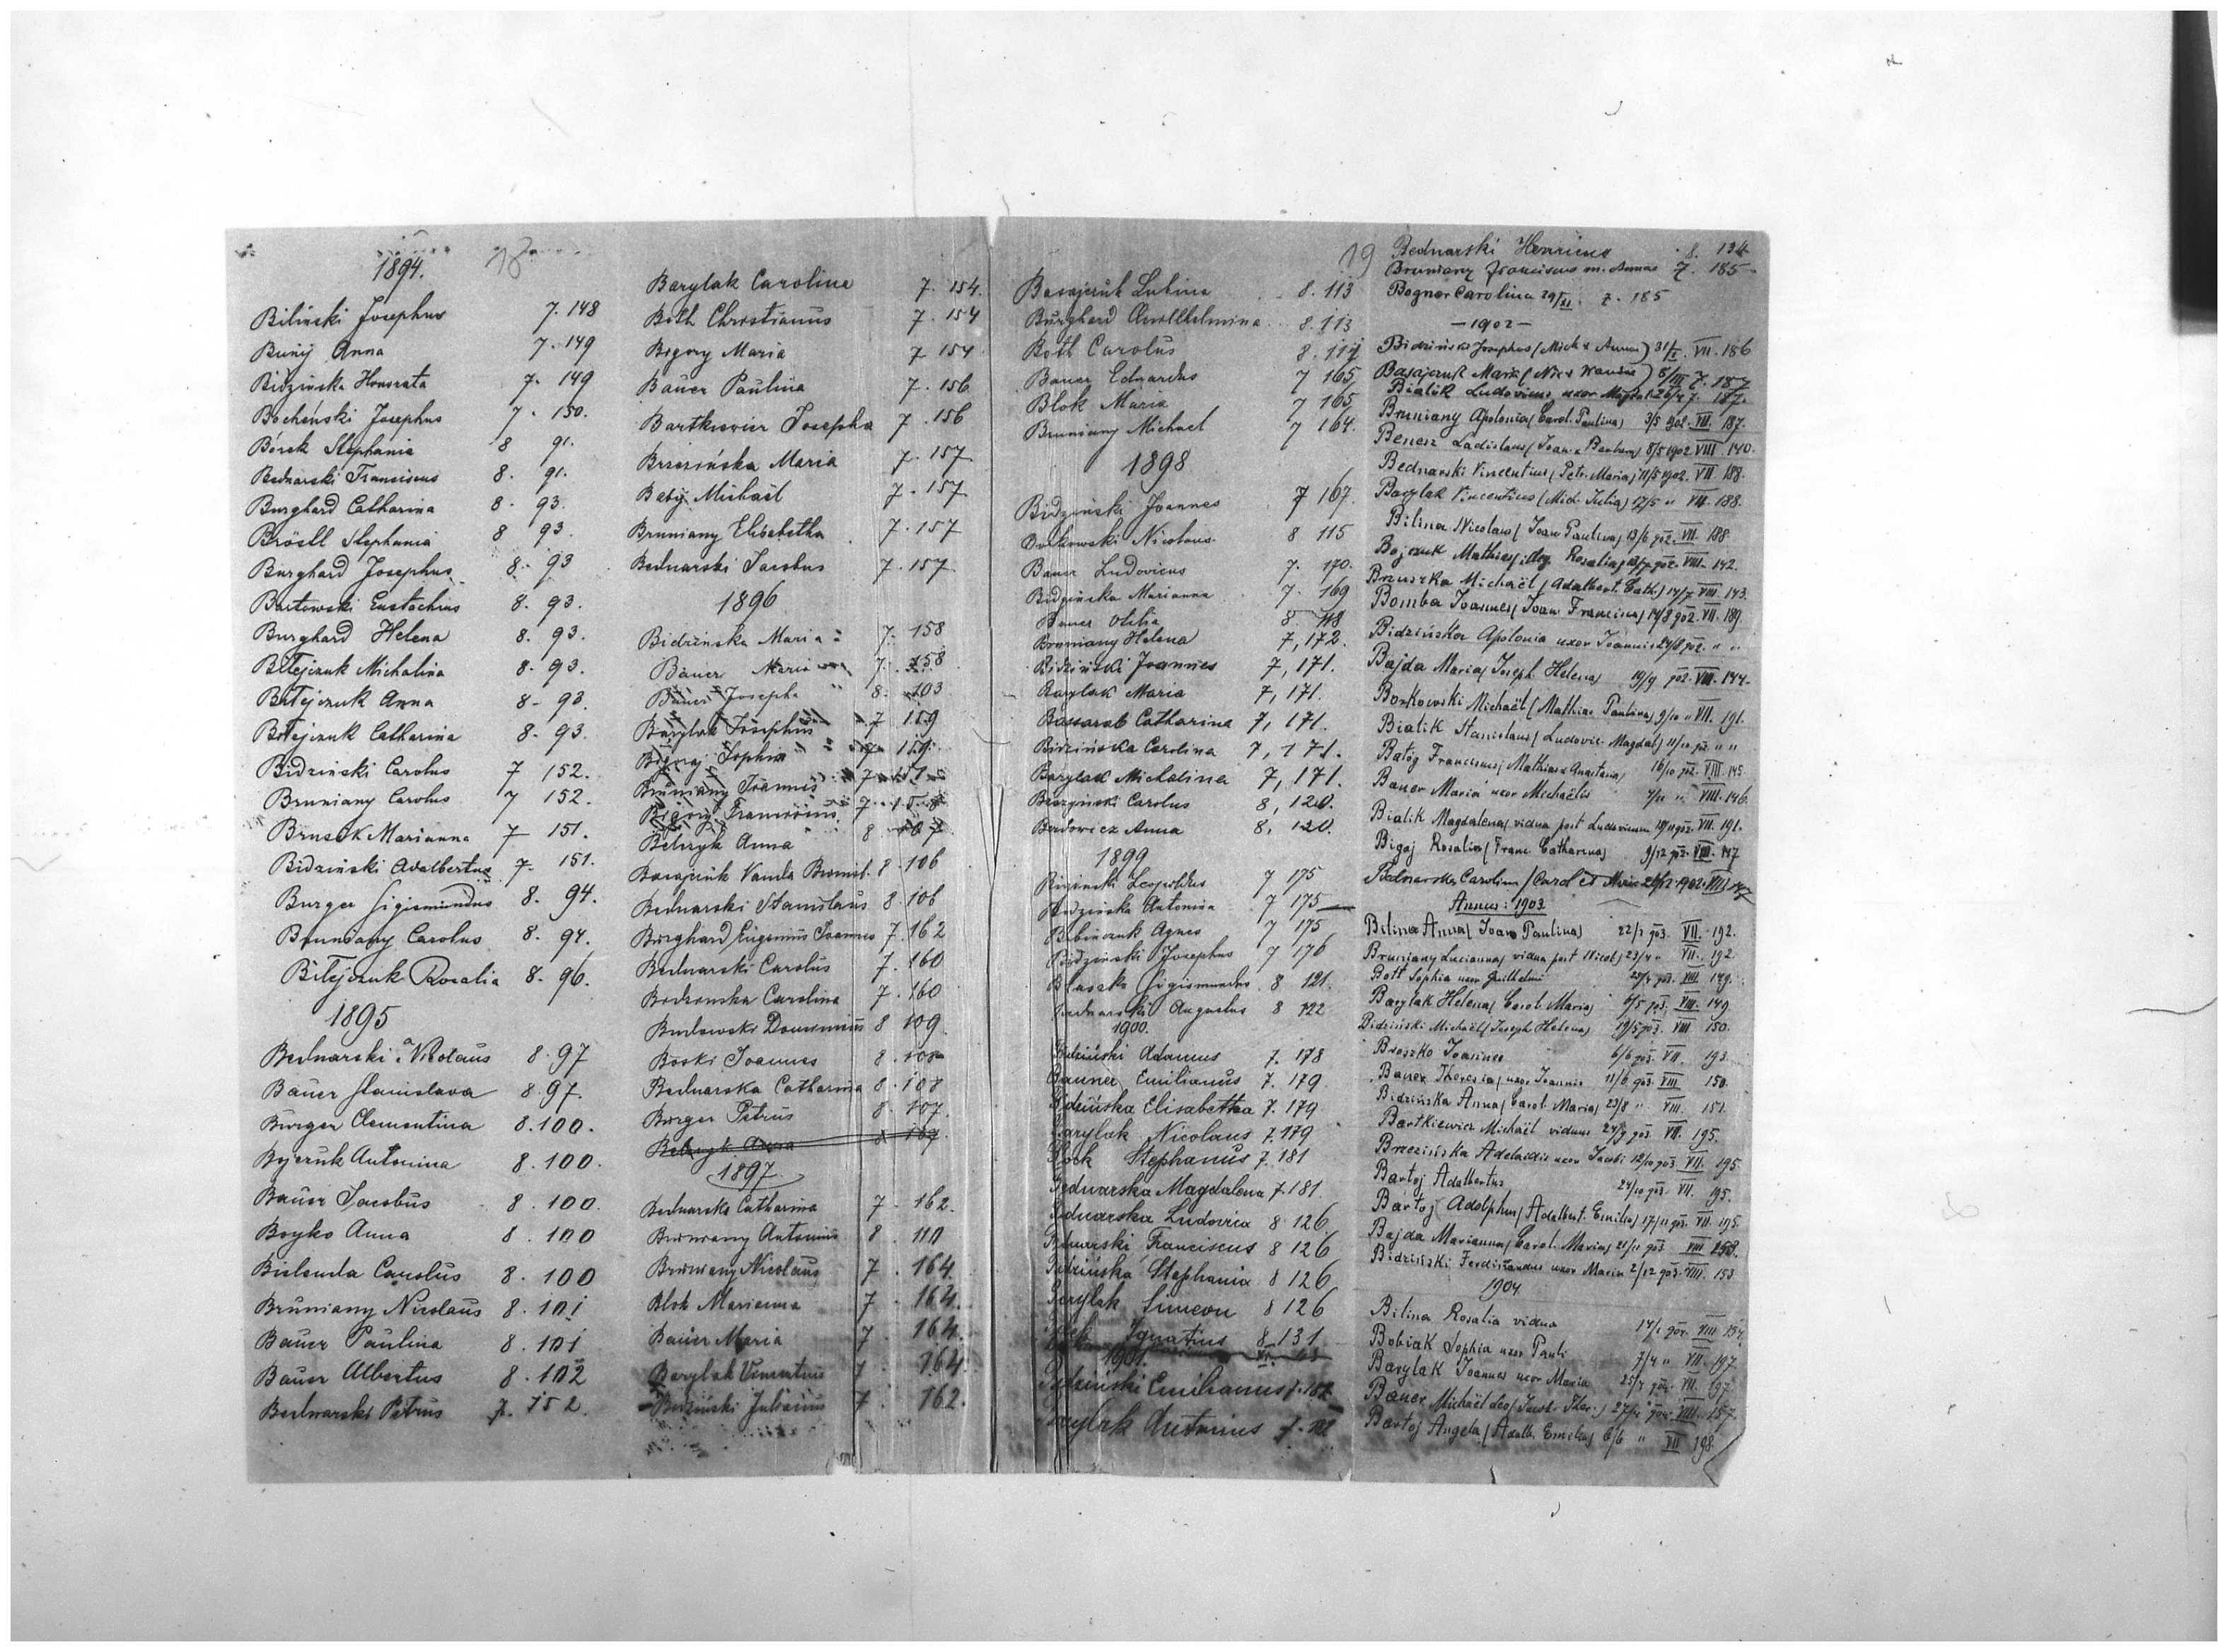 1894.
Biliński Josephus 7. 148
Bunij Anna 7. 149
Bidzinska Honorata 7. 149
Bocheński Josephus 7. 150.
Borek Stephania 8 91.
Bednarski Franciscus 8. 91.
Burghard Catharina 8. 93.
Bröstl Stephania 8 93.
Burghard Josephus 8. 93
Bortowski Eustachius 8. 93.
Burghard Helena 8. 93.
Bitejczuk Michalina 8. 93.
Bitejczuk Anna 8 - 93.
Bitejczuk Catharina 8. 93.
Bidzinski Carolus 7 152.
Bruniany Carolus 7 152.
Brusek Marianna 7 151.
Bidzinski Adalbertus 7. 151.
Burger Sigismundus 8. 94.
Bruniany Carolus 8. 94.
Bitejczuk Rosalia 8. 96.
1895
Bednarski Nicolaus 8. 97
Bauer Stanislava 8. 97.
Burger Clementina 8. 100.
Bojczuk Antonina 8. 100.
Bauer Jacobus 8. 100.
Boyko Anna 8. 100
Bielenda Carolus 8. 100
Bruniany Nicolaus 8. 101
Bauer Paulina 8. 101
Bauer Albertus 8. 102
Bednarski Petrus 7. 152.
Barylak Carolina 7. 154.
Both Christianus 7. 154
Begory Maria 7 154
Bauer Paulina 7. 156
Bartkiewicz Josepha 7. 156
Brzezińska Maria 7. 157
Babij Michael 7. 157
Bruniany Elisabetha 7. 157
Bednarski Jacobus 7. 157
1896
Bidzinska Maria 7. 158
Bauer Maria 7. 158
Bauer Josepha 8. 103
Barylak Josephus 7 159
Sophia 7 159
Bruniany Joannes 7
Franciscus 7
Anna 8
Basajczuk Vanda Bronisl. 8. 106
Bednarski Stanislaus 8. 106
Burghard Eugenius Joannes 7. 162
Bednarski Carolus 7. 160
Carolina 7. 160
Dominicus 8 109
Boski Joannes 8.
Bednarska Catharina 8. 108
Burger Petrus 8. 107.
Anna 8 107
1897
Bednarska Catharina 7. 162.
Bruniany Antonius 8. 110
Bruniany Nicolaus 7. 164
Blok Marianna 7. 164.
Bauer Maria 7. 164.
Barylak Vincentius 7. 164.
Bidzinski Julianus 7. 162.
Basajczuk Lubina 8. 113
Burghard 8. 113
Both Carolus 8. 114
Bauer Eduardus 7 165
Blok Maria 7 165
Bruniany Michael 7 164.
1898
Bidzinski Joannes 7 167.
Borkowski Nicolaus 8 115
Bauer Ludovicus 7. 170.
Bidzinska Marianna 7. 169
Bauer Otilia 8. 118
Bruniany Helena 7, 172.
Bidziński Joannes 7, 171.
Barylak Maria 7, 171.
Bassarab Catharina 7, 171.
Bidzińska Carolina 7, 171.
Barylak Michalina 7, 171.
Carolus 8, 120.
Anna 8, 120.
1899
Leopoldus 7 175
Bidzinska Antonina 7 175
Agnes 7 175
Bidzinski Josephus 7 176
Sigismundus 8 121.
Bednarski Augustus 8 122
1900.
Bidziński Adamus 7. 178
Bauner Emilianus 7. 179
Bidzińska Elisabetha 7. 179
Barylak Nicolaus 7. 179
Stephanus 7. 181
Bednarska Magdalena 7. 181.
Bednarska Ludovica 8 126
Bednarski Franciscus 8 126
Bidzińska Stephania 8 126
Barylak Simeon 8 126
Ignatius 8. 131
1901.
Bidziński Emilianus 7. 182
Barylak Antonius 7. 182
19 Bednarski Henricus 8. 134
Bruniany Franciscus m. Annae 7. 185
Bogner Carolina 29/XI. 7. 185
— 1902 —
Bidziński Josephus (Mich & Anna) 31/I. VII. 186
Basajczuk Maria 7. 187
Bialik Ludovicus uxor Magdal. 187.
Bruniany Apolonia (Carol. Paulina) 3/5 902. VII. 187.
Benesz Ladislaus (Joan & Barbara) 8/5 1902. VIII. 140.
Bednarski Vincentius (Petr. Maria) 11/5 1902. VII. 188.
Barylak Vincentius (Mich. Julia) 12/5 " VII. 188.
Bilina Nicolaus (Joan Paulina) 13/6 902. VII. 188
Bojczuk Mathias Rosalia 902. VIII. 142.
Brzuszka Michaël (Adalbert. Cath.) 14/7 VIII. 143.
Bomba Joannes (Joan Francisca) 14/8 902. VII. 189.
Bidzińska Apolonia uxor Joannis 24/8 902. " "
Bajda Maria (Joseph Helena) 19/9 902. VIII. 144.
Borkowski Michaël (Mathias Paulina) 9/10 " VII. 191.
Bialik Stanislaus (Ludovic. Magdal.) 11/10 " "
Batóg Franciscus (Mathias & Anastasia) 16/10 902. VIII. 145
Bauer Maria uxor Michaëlis VIII. 146.
Bialik Magdalena (vidua post Ludovicum) VII. 191.
Bigaj Rosalia (Franc Catharina) 9/12 902. VIII. 147
Bednarska Carolina (Carol et Maria) 1902. VIII. 147
Annus: 1903
Bilina Anna (Joan Paulina) 22/1 903. VII. 192.
Bruniany Lucianna (vidua post Nicol.) 23/4 " VII. 192.
Bott Sophia uxor Guilhelmi 903. VIII. 149.
Barylak Helena (Carol. Maria) 4/5 903. VIII. 149
Bidziński Michaël (Joseph Helena) 19/5 903. VIII. 150.
Broszko Joannes 6/6 903. VII. 193
Bauer Theresia (uxor Joannis) 11/6 903. VIII 150.
Bidzińska Anna (Carol. Maria) 23/8 " VIII. 151.
Bartkiewicz Michaël viduus 24/9 903. VII. 195.
Brzezińska Adelaidis uxor Jacobi 12/10 903. VII. 195
Bartoj Adalbertus 24/10 903. VII. 195.
Bartoj Adolphus (Adalbert. Emilia) 17/11 903. VII. 195.
Bajda Marianna (Carol. Maria) 21/11 903. VIII 253.
Bidziński Ferdinandus uxor Maria 2/12 903. VIII. 153
1904
Bilina Rosalia vidua 14/1 904. VIII 154.
Bobiak Sophia uxor Pauli 7/4 " VII. 197
Barylak Joannes uxor Maria 25/4 904. VII. 197.
Bauer Michaël Leo 904. VIII. 157.
Bartoj Angela (Adalb. Emilia) 6/6 " VII 198.